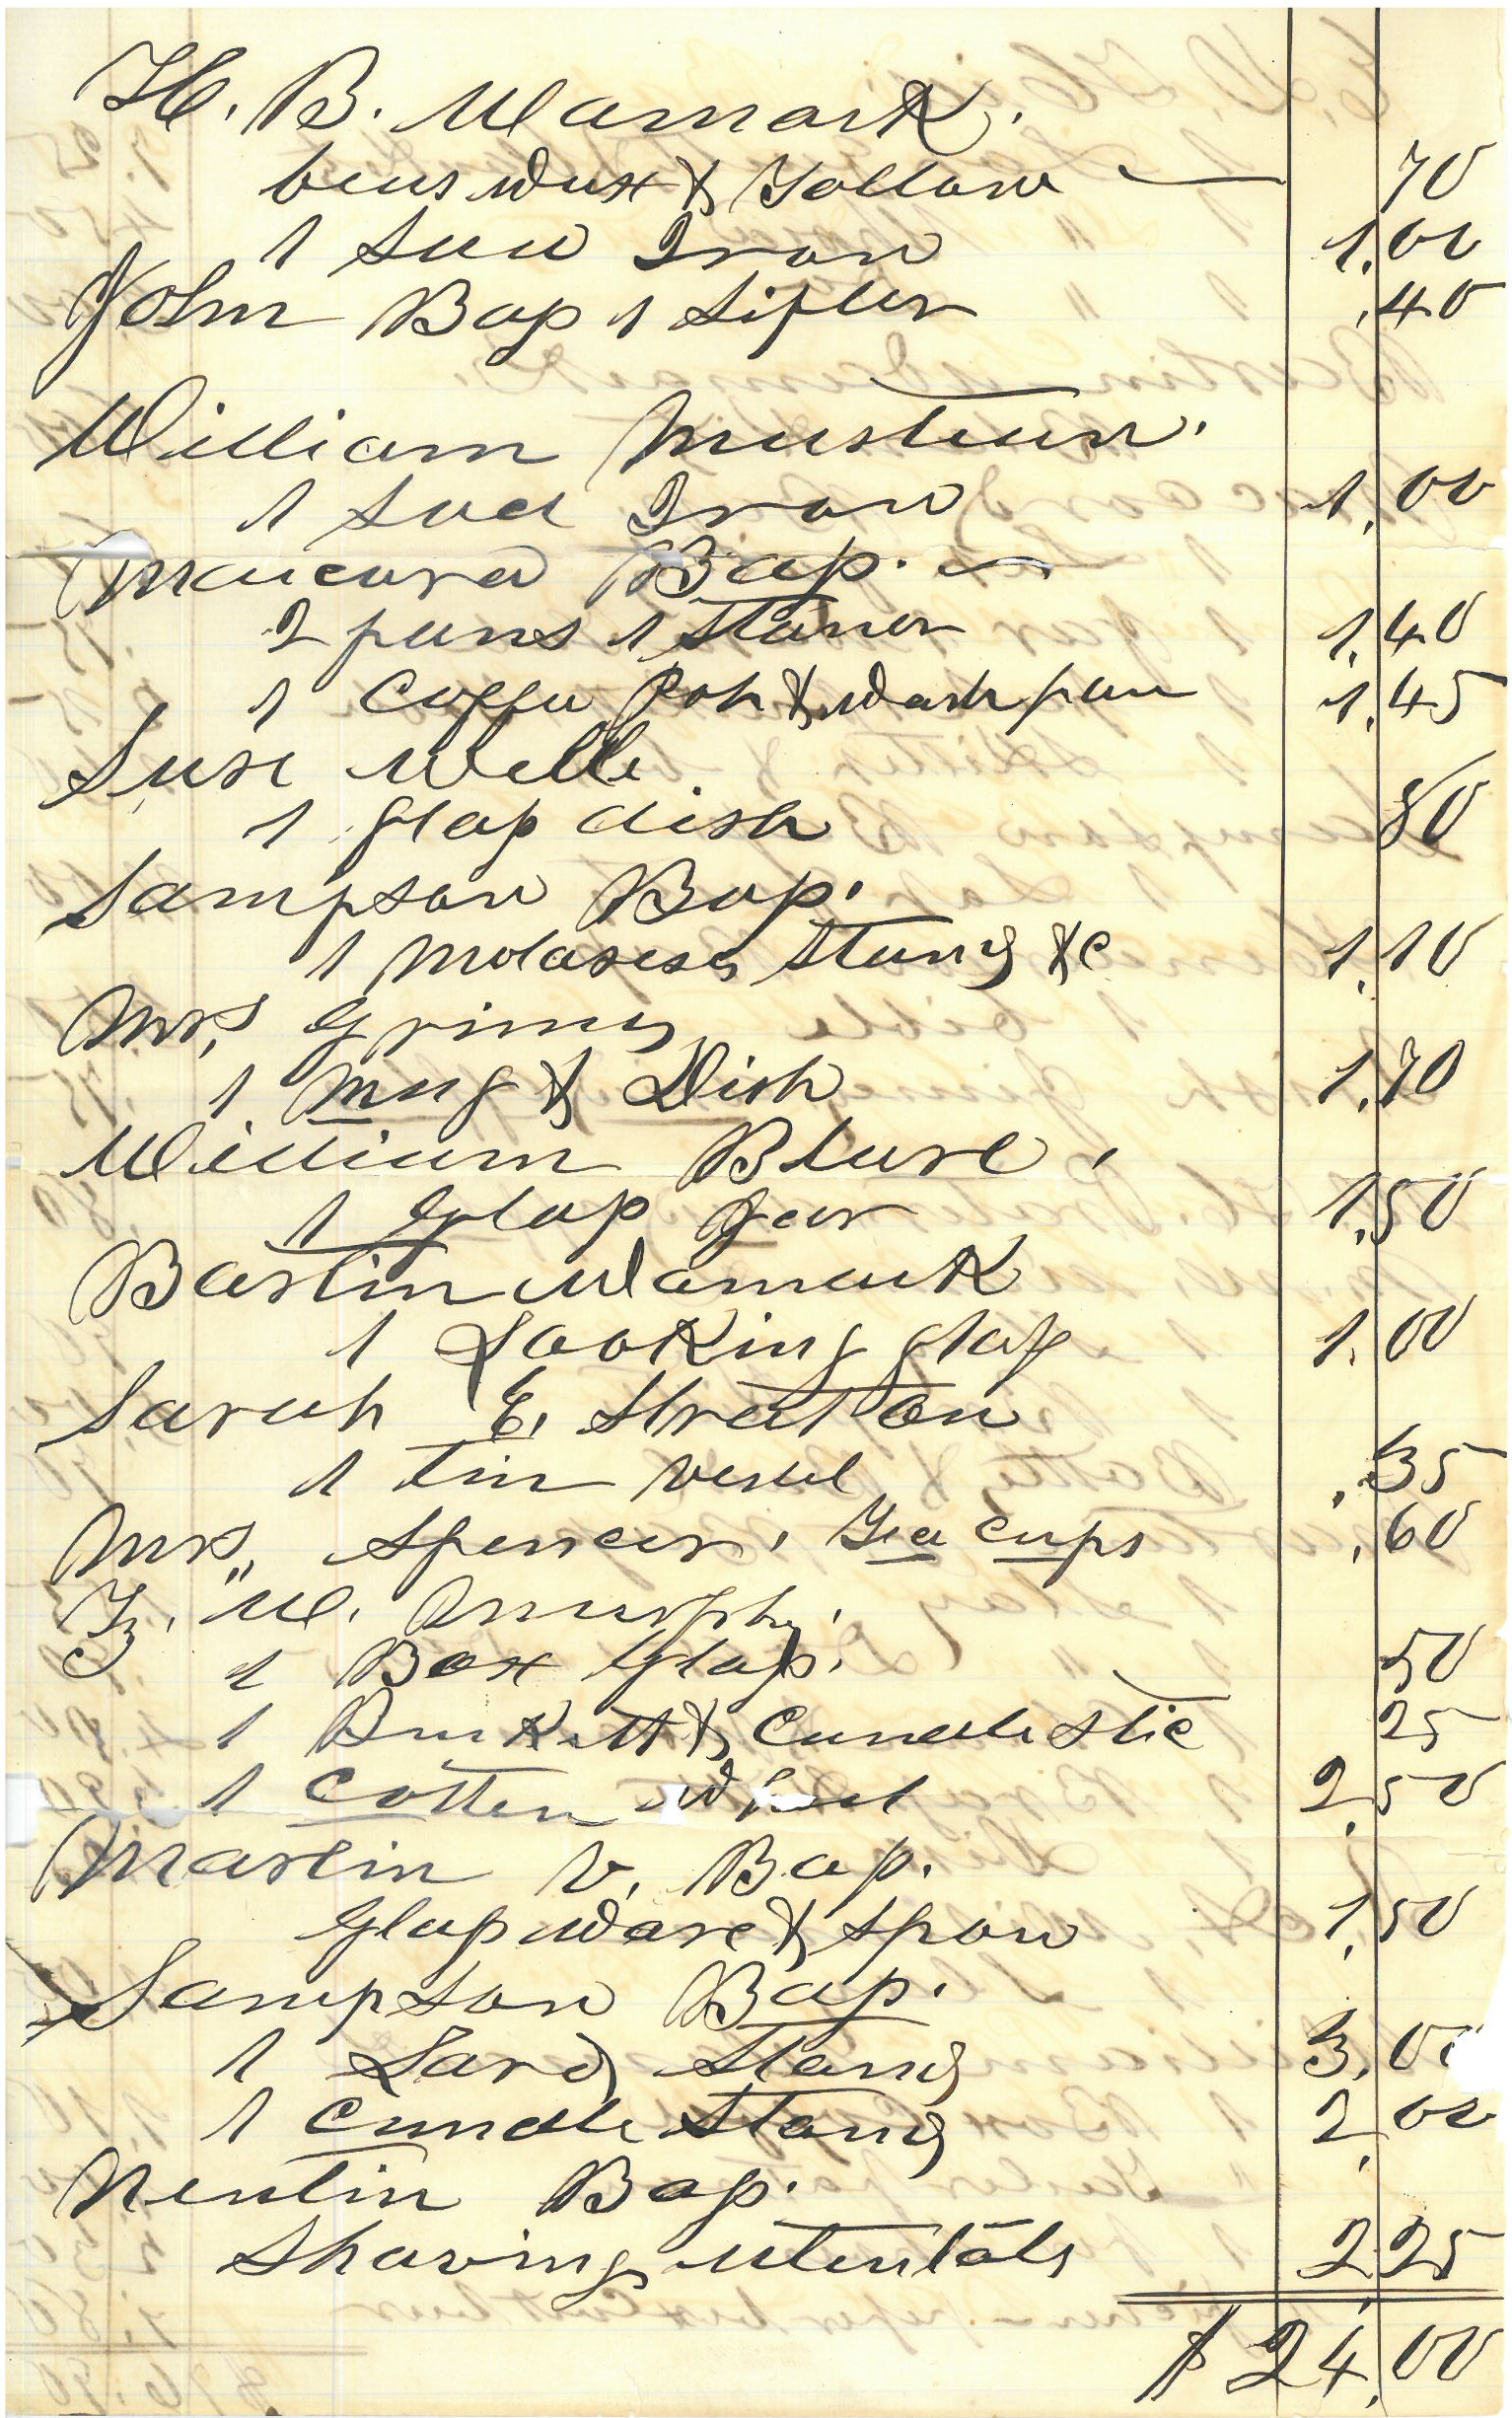 H. B. Wamack.
bees wax & Tallow — 70
1 Sad Iron 1.00
John Bass 1 Sifter .40
William Musteen.
1 Sad Iron 1.00
Bass.
2 pans 1 Staner 1.40
1 Coffee Pot & wash pan 1.45
Susi Webb
1 glass dish 80
Sampson Bass.
1 Molasess Stand &c 1.10
Mrs, Grimes
1 Mug & Dish 1.70
William Blure,
1 Glass Jar 1.50
Bartin Wamack
1 Looking glass 1.00
Sarah E. Stratton
1 Tin vessel .35
Mrs,, Spencer, Tea cups .60
Z. W. Murphy.
1 Box Glass. 50
1 Buckett & Candle Stic 25
1 Cotten Wheel 2.50
Martin V. Bass.
Glass ware & spoon 1.50
Sampson Bass.
1 Lard Stand 3.00
1 Candle Stand 2.00
Neutin Bass.
Shaving utentals 2.25
$24.00